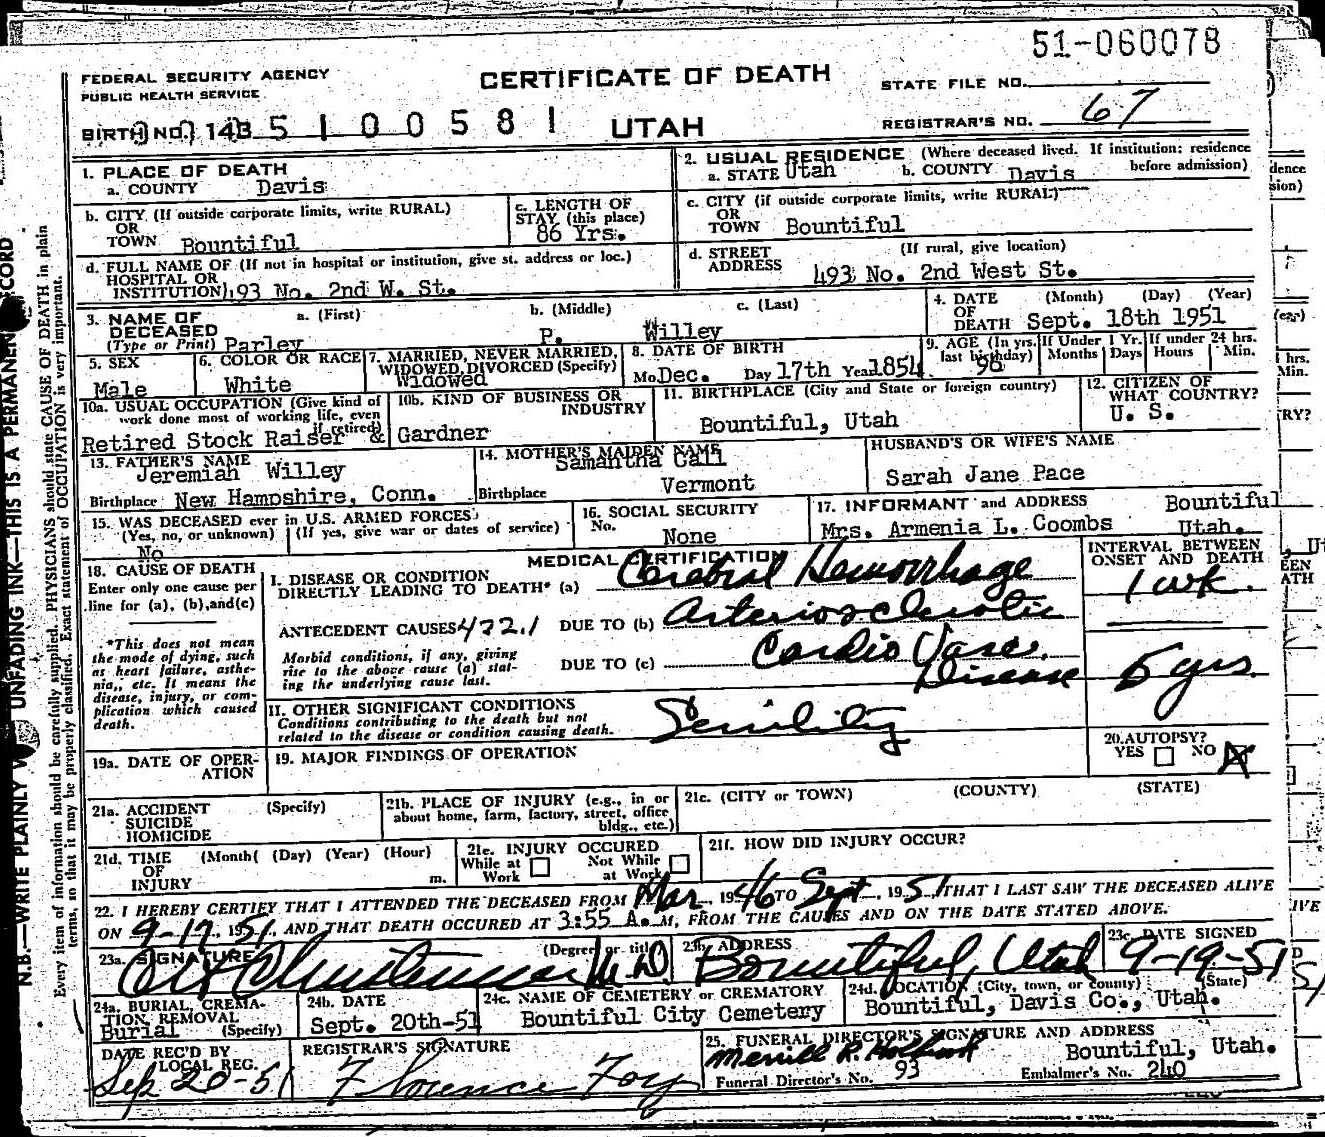 51-060078
FEDERAL SECURITY AGENCY
PUBLIC HEALTH SERVICE
CERTIFICATE OF DEATH
STATE FILE NO.
BIRTH NO. 143 510058 1
UTAH
REGISTRAR'S NO. 67
1. PLACE OF DEATH
a. COUNTY Davis
2. USUAL RESIDENCE (Where deceased lived. If institution: residence before admission)
a. STATE Utah b. COUNTY Davis
b. CITY (If outside corporate limits, write RURAL)
OR
TOWN Bountiful
c. LENGTH OF
STAY (this place)
86 Yrs.
c. CITY (if outside corporate limits, write RURAL)
OR
TOWN Bountiful
d. FULL NAME OF (If not in hospital or institution, give st. address or loc.)
HOSPITAL OR
INSTITUTION 493 No. 2nd W. St.
d. STREET (If rural, give location)
ADDRESS 493 No. 2nd West St.
3. NAME OF DECEASED
(Type or Print)
a. (First) b. (Middle) c. (Last)
Parley P. Willey
4. DATE OF DEATH (Month) (Day) (Year)
Sept. 18th 1951
5. SEX
Male
6. COLOR OR RACE
White
7. MARRIED, NEVER MARRIED,
WIDOWED, DIVORCED (Specify)
Widowed
8. DATE OF BIRTH
Mo. Dec. Day 17th Year 1854
9. AGE (In yrs. last birthday)
96
If Under 1 Yr. Months Days
If under 24 hrs. Hours Min.
10a. USUAL OCCUPATION (Give kind of
work done most of working life, even
if retired)
Retired Stock Raiser &
10b. KIND OF BUSINESS OR
INDUSTRY
Gardner
11. BIRTHPLACE (City and State or foreign country)
Bountiful, Utah
12. CITIZEN OF
WHAT COUNTRY?
U. S.
13. FATHER'S NAME
Jeremiah Willey
Birthplace New Hampshire, Conn.
14. MOTHER'S MAIDEN NAME
Samantha Call
Birthplace Vermont
HUSBAND'S OR WIFE'S NAME
Sarah Jane Pace
15. WAS DECEASED ever in U.S. ARMED FORCES?
(Yes, no, or unknown) (If yes, give war or dates of service)
No
16. SOCIAL SECURITY
No. None
17. INFORMANT and ADDRESS
Mrs. Armenia L. Coombs Bountiful Utah.
18. CAUSE OF DEATH
Enter only one cause per
line for (a), (b), and (c)
*This does not mean
the mode of dying, such
as heart failure, asthe-
nia, etc. It means the
disease, injury, or com-
plication which caused
death.
MEDICAL CERTIFICATION
I. DISEASE OR CONDITION
DIRECTLY LEADING TO DEATH* (a) Cerebral Hemorrhage
ANTECEDENT CAUSES 422.1 DUE TO (b) Arteriosclerotic
Morbid conditions, if any, giving
rise to the above cause (a) stat-
ing the underlying cause last.
DUE TO (c) Cardio Vasc.
Disease
II. OTHER SIGNIFICANT CONDITIONS
Conditions contributing to the death but not
related to the disease or condition causing death.
Senility
INTERVAL BETWEEN
ONSET AND DEATH
1 wk.
5 yrs.
19a. DATE OF OPER-
ATION
19. MAJOR FINDINGS OF OPERATION
20. AUTOPSY?
YES NO X
21a. ACCIDENT (Specify)
SUICIDE
HOMICIDE
21b. PLACE OF INJURY (e.g., in or
about home, farm, factory, street, office
bldg., etc.)
21c. (CITY or TOWN) (COUNTY) (STATE)
21d. TIME (Month) (Day) (Year) (Hour)
OF
INJURY m.
21e. INJURY OCCURED
While at Work Not While at Work
21f. HOW DID INJURY OCCUR?
22. I HEREBY CERTIFY THAT I ATTENDED THE DECEASED FROM Mar, 1946 TO Sept, 1951, THAT I LAST SAW THE DECEASED ALIVE
ON 9-17, 1951, AND THAT DEATH OCCURED AT 3:55 A. M, FROM THE CAUSES AND ON THE DATE STATED ABOVE.
23a. SIGNATURE (Degree or title)
M.D.
23b. ADDRESS
Bountiful, Utah
23c. DATE SIGNED
9-19-51
24a. BURIAL, CREMA-
TION REMOVAL
Burial (Specify)
24b. DATE
Sept. 20th-51
24c. NAME OF CEMETERY or CREMATORY
Bountiful City Cemetery
24d. LOCATION (City, town, or county) (State)
Bountiful, Davis Co., Utah.
DATE REC'D BY
LOCAL REG.
Sep 20-51
REGISTRAR'S SIGNATURE
Florence Foy
25. FUNERAL DIRECTOR'S SIGNATURE AND ADDRESS
Merrill R. Holbrook Bountiful, Utah.
Funeral Director's No. 93 Embalmer's No. 240
N.B.—WRITE PLAINLY UNFADING INK—THIS IS A PERMANENT RECORD
Every item of information should be carefully supplied. PHYSICIANS should state CAUSE OF DEATH in plain
terms, so that it may be properly classified. Exact statement of OCCUPATION is very important.